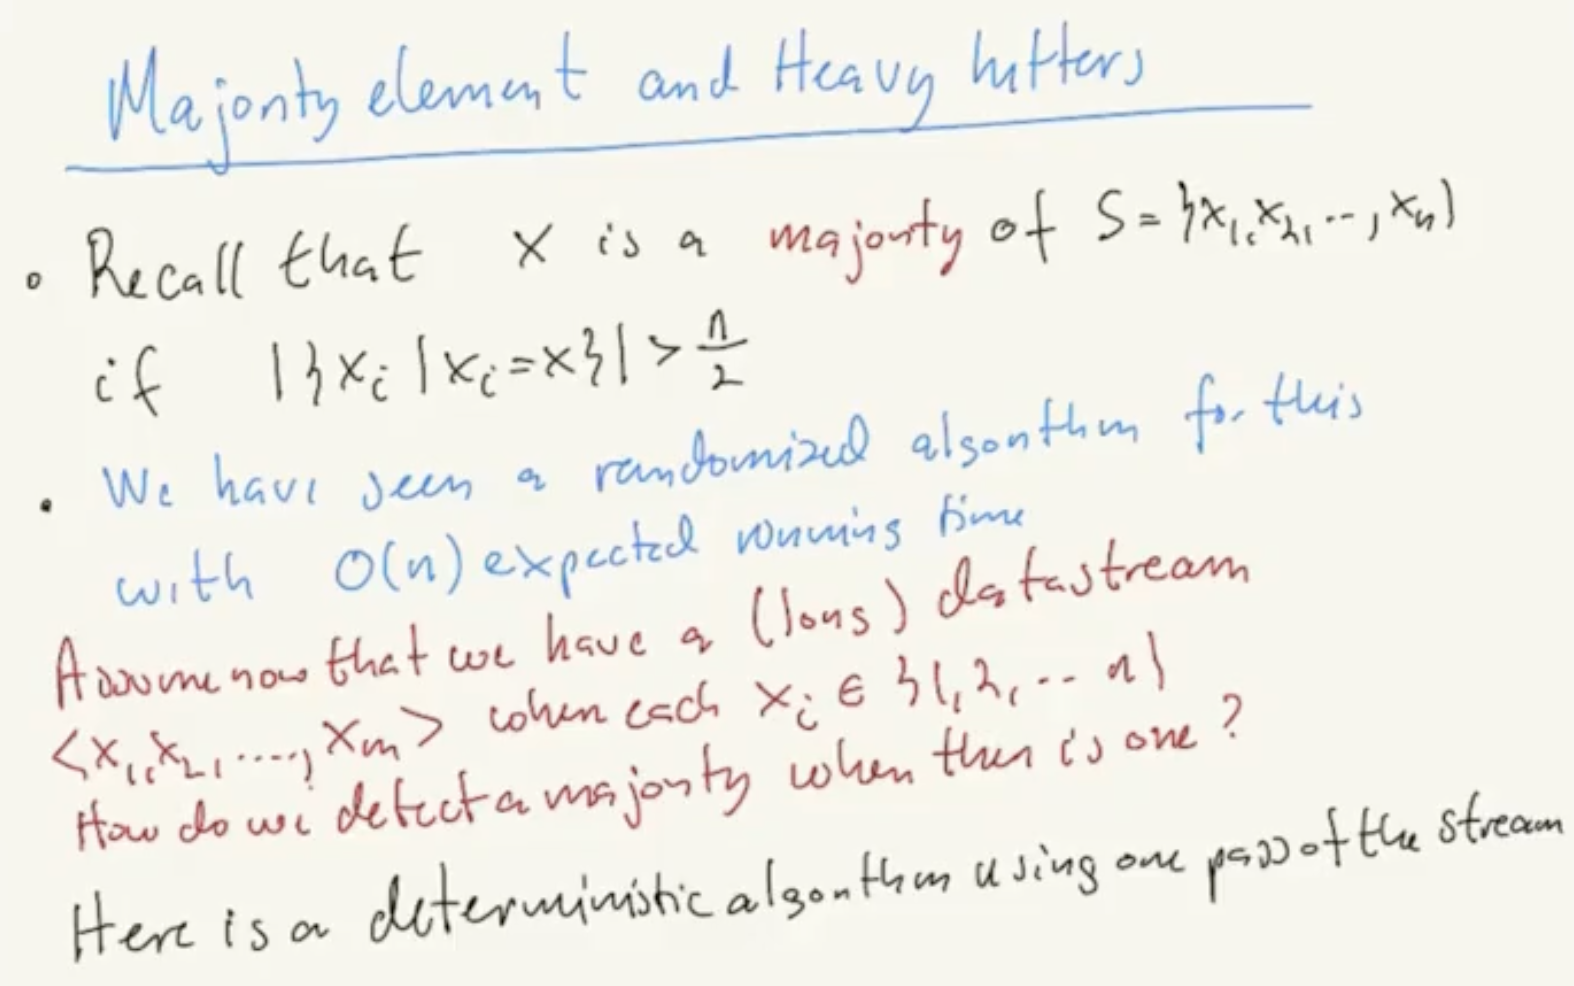 Majority element and Heavy hitters
• Recall that x is a majority of S = {x1, x2, .., xn}
if |{xi | xi = x}| > n/2
• We have seen a randomized algorithm for this
with O(n) expected running time
Assume now that we have a (long) datastream
<x1, x2, ...., xm> when each xi ∈ {1, 2, .. n}
How do we detect a majority when there is one?
Here is a deterministic algorithm using one pass of the stream